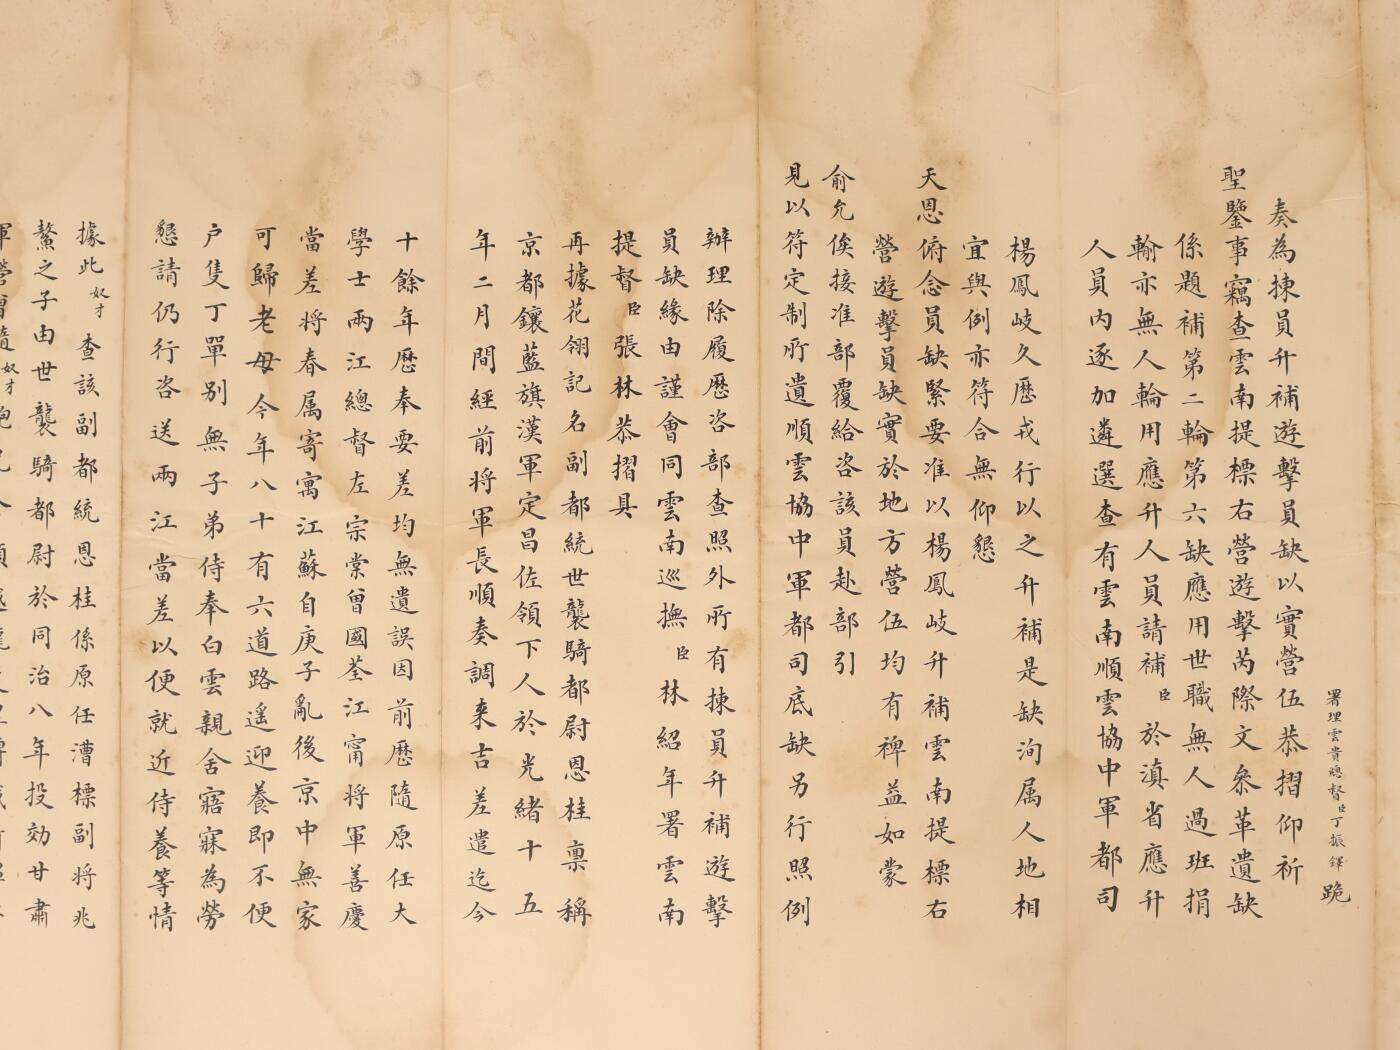 署理雲貴總督臣丁振鐸跪
奏為揀員升補遊擊員缺以實營伍恭摺仰祈
聖鑒事竊查雲南提標右營遊擊芮際文叅革遺缺
係題補第二輪第六缺應用世職無人過班捐
輸亦無人輪用應升人員請補臣於滇省應升
人員內逐加遴選查有雲南順雲協中軍都司
楊鳳岐久歷戎行以之升補是缺洵属人地相
宜與例亦符合無仰懇
天恩俯念員缺緊要准以楊鳳岐升補雲南提標右
營遊擊員缺實於地方營伍均有裨益如蒙
俞允俟接准部覆給咨該員赴部引
見以符定制所遺順雲協中軍都司底缺另行照例
辦理除履歷咨部查照外所有揀員升補遊擊
員缺緣由謹會同雲南巡撫臣林紹年署雲南
提督臣張林恭摺具
再據花翎記名副都統世襲騎都尉恩桂禀稱
京都鑲藍旗漢軍定昌佐領下人於光緒十五
年二月間經前將軍長順奏調来吉差遣迄今
十餘年歷奉要差均無遺誤因前歷隨原任大
學士兩江總督左宗棠曾國荃江甯將軍善慶
當差將春属寄寓江蘇自庚子亂後京中無家
可歸老母今年八十有六道路遥迎養即不便
户隻丁單别無子弟侍奉白雲親舍寤寐為勞
懇請仍行咨送兩江當差以便就近侍養等情
據此奴才查該副都統恩桂係原任漕標副將兆
鰲之子由世襲騎都尉於同治八年投効甘肅